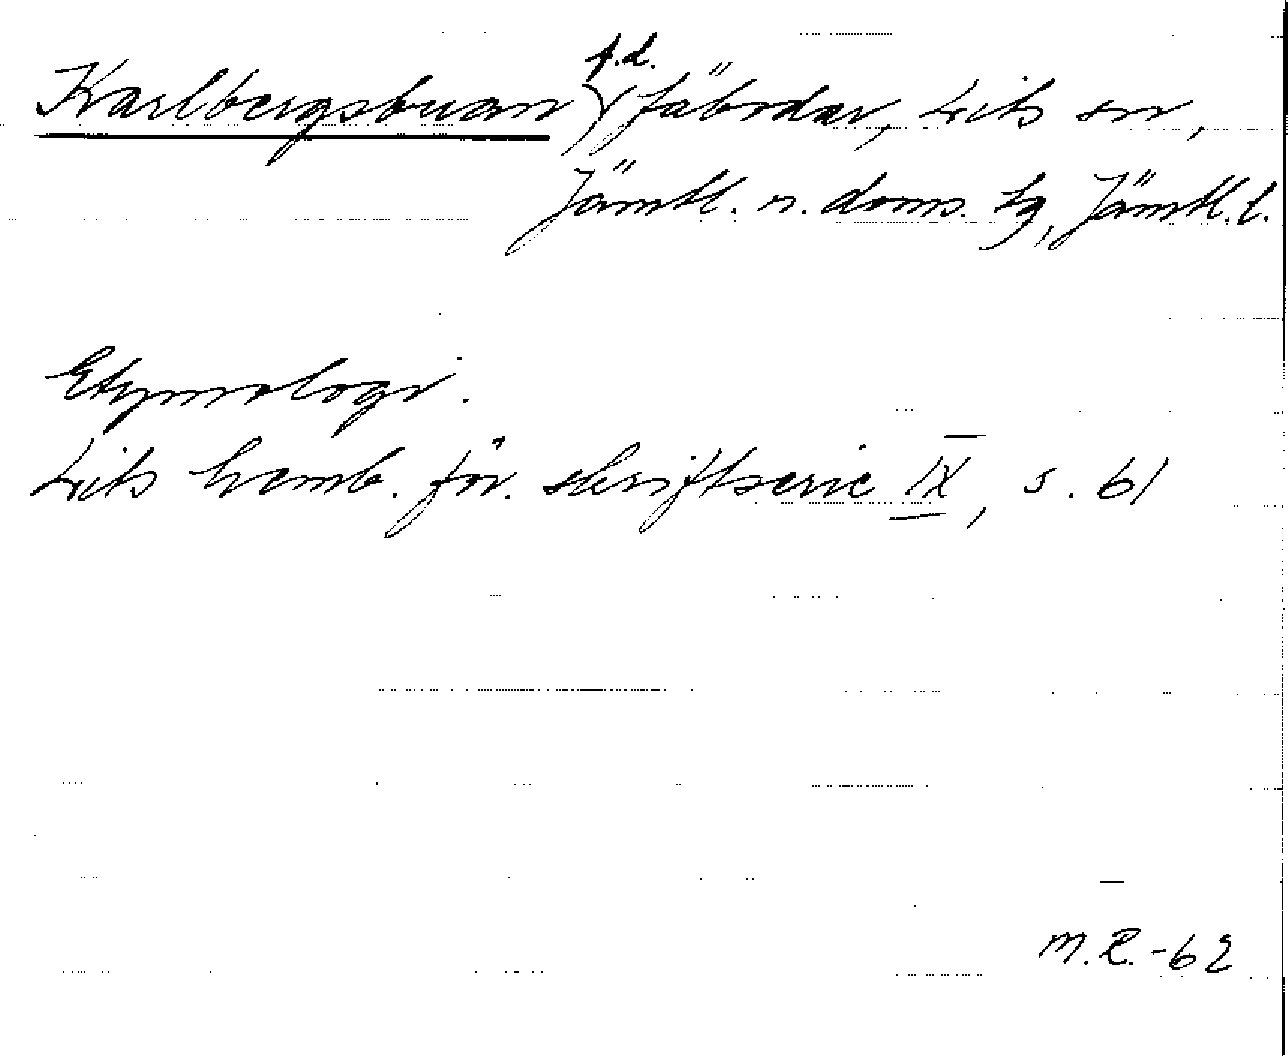 Karlbergsbuan f.d. fäbodar, Lits sn,
Jämtl. n. doms. tg, Jämtl. l.
Etymologi.
Lits hemb. för. skriftserie IX, s. 61
M.R. -62